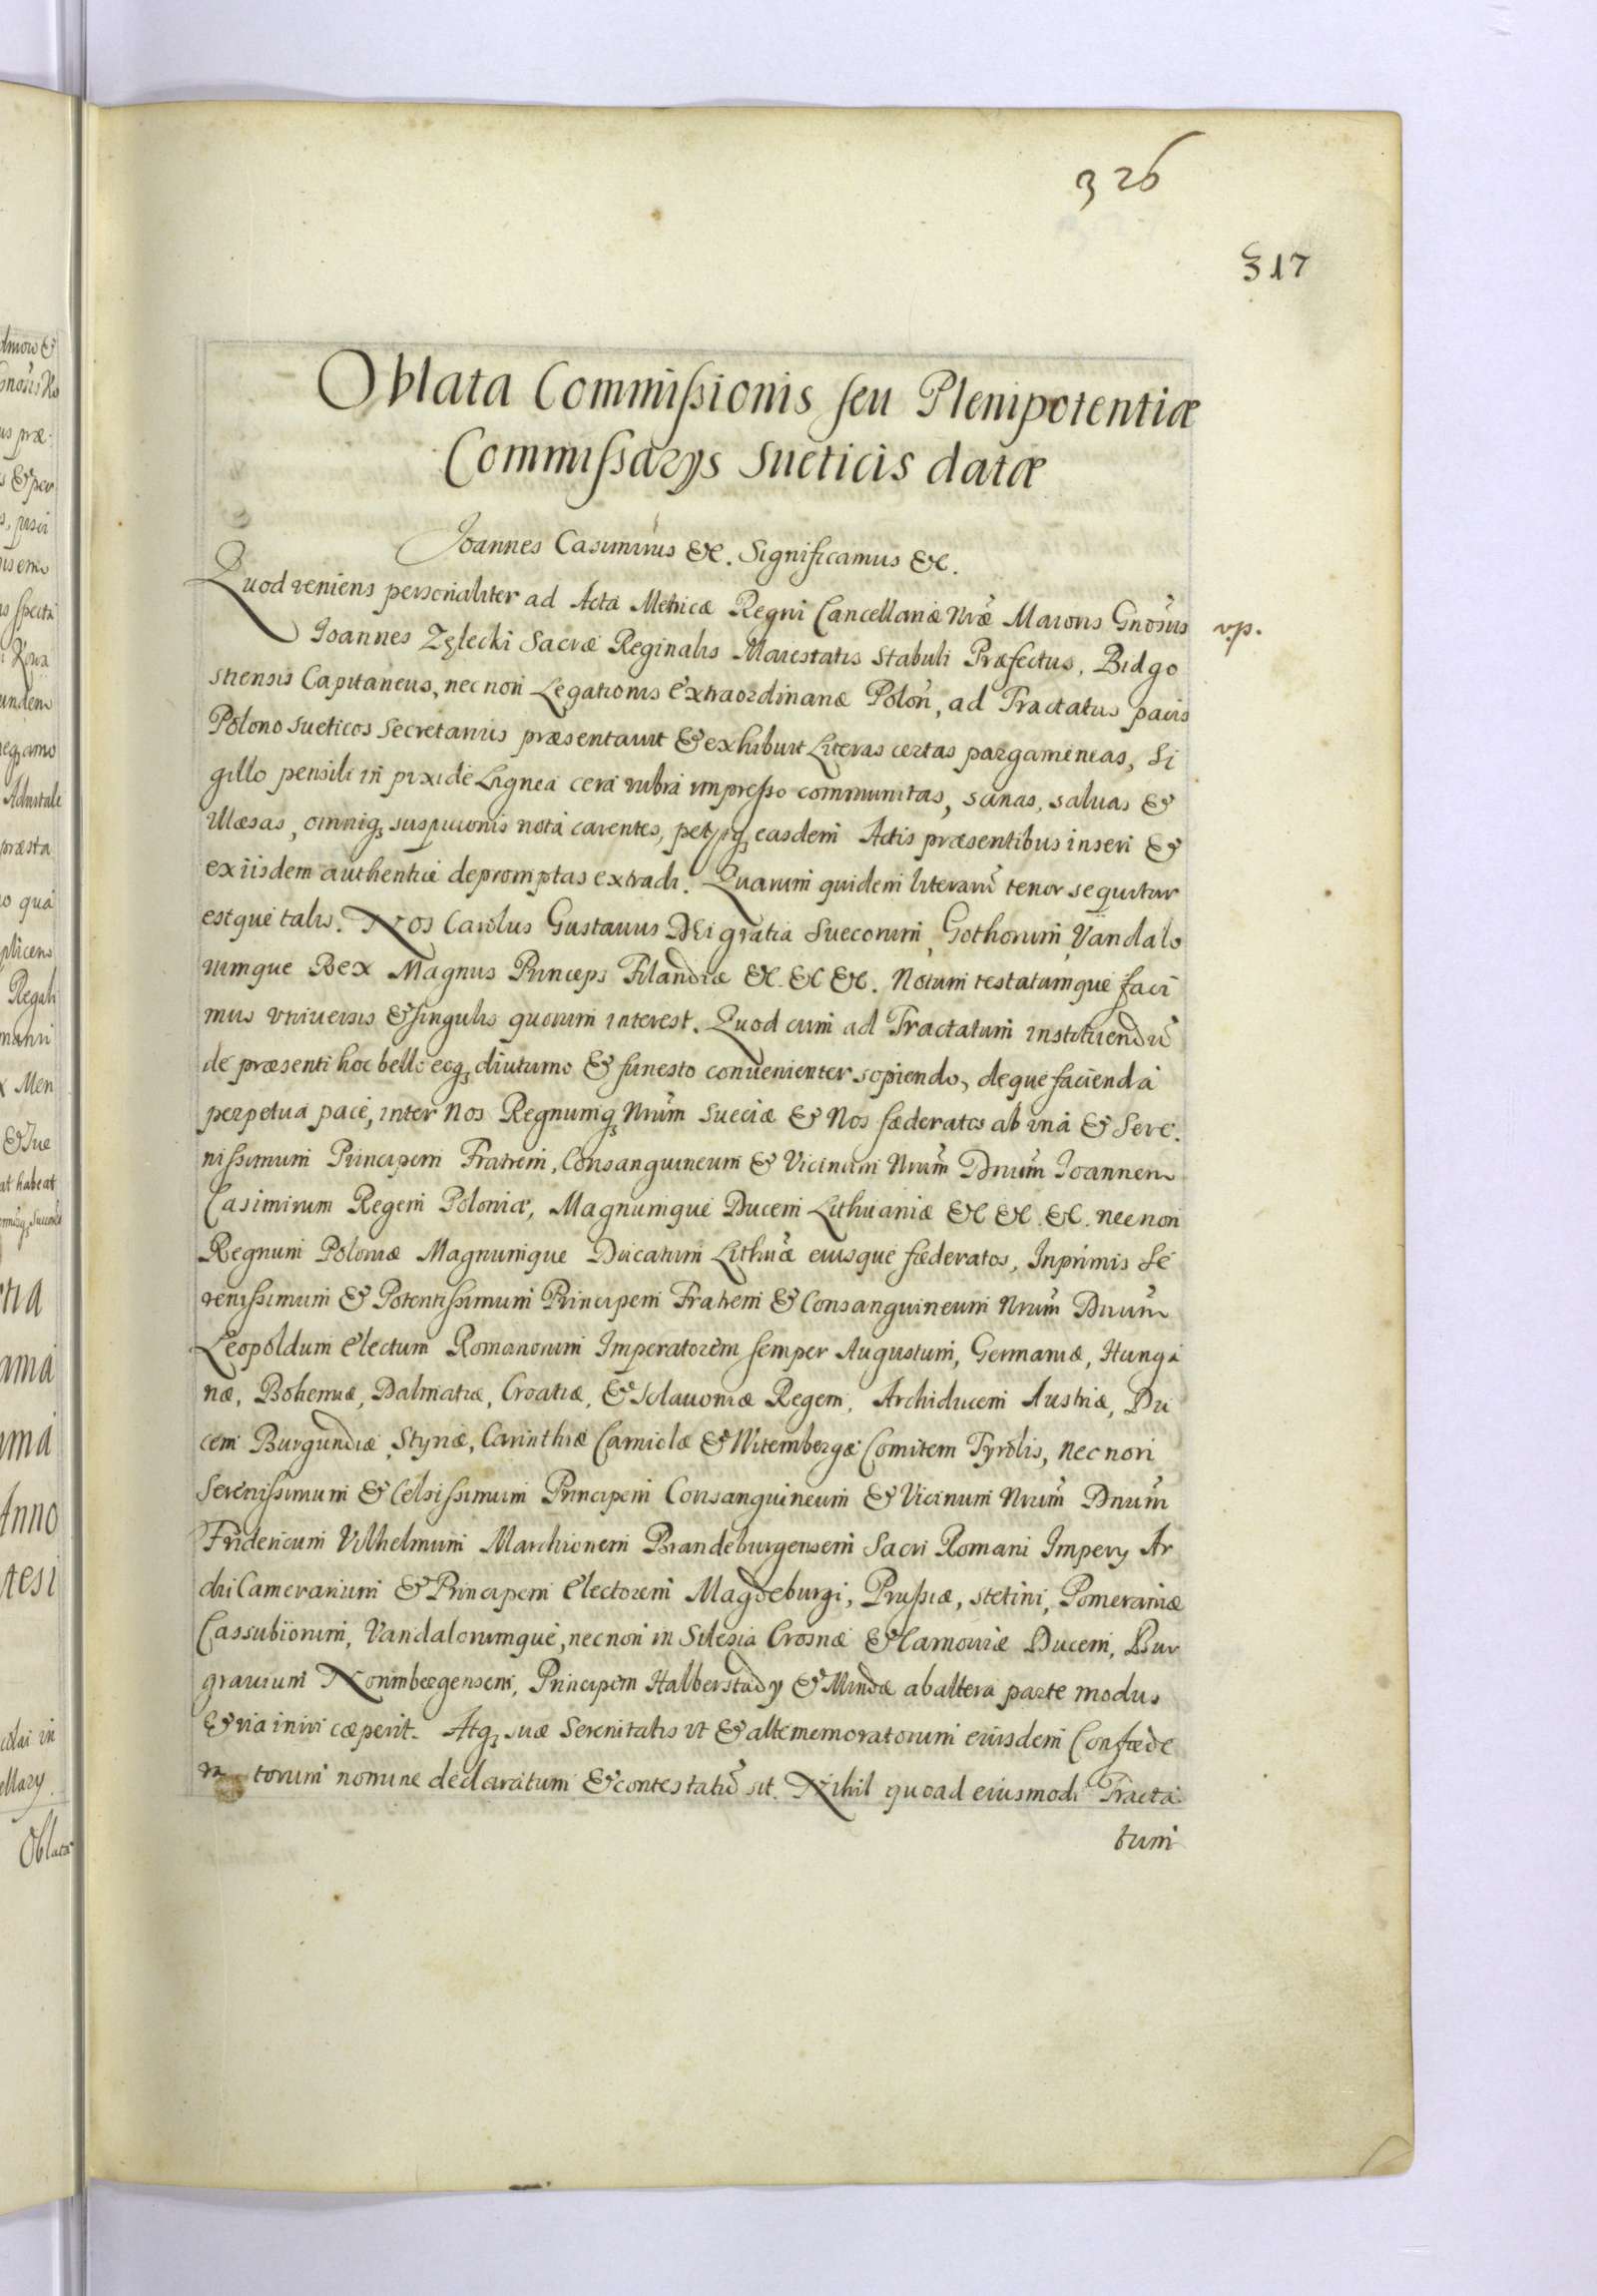 326
317
Oblata Commißionis seu Plenipotentiæ
Commissarys Sueticis datæ
Joannes Casimirus &c. Significamus &c.
Quod veniens personaliter ad Acta Metricæ Regni Cancellariæ Nræ Maioris Gnosus vp.
Joannes Zęlecki Sacræ Reginalis Maiestatis Stabuli Præfectus, Bidgo
stiensis Capitaneus, nec non Legationis Extraordinariæ Polon, ad Tractatus pacis
Polono Sueticos Secretarius præsentauit & exhibuit Literas certas pargameneas, Si
gillo pensili in pixide Lignea cera rubra impresso communitas, sanas, saluas &
illæsas, omniq; suspicionis notá carentes, petytq; easdem Actis præsentibus inseri &
ex iisdem authentice depromptas extradi. Quarum quidem literarū tenor sequitur
estque talis. Nos Carolus Gustauus DEi gratia Suecorum, Gothorum, Vandalo
rumque Rex Magnus Princeps Filandiæ &c. &c &c. Notum testatumque faci
mus vniuersis & singulis quorum interest. Quod cum ad Tractatum instituendū
de præsenti hoc bello eoq; diuturno & funesto conuenienter sopiendo, deque faciendá
perpetuá pace, inter Nos Regnumq; Nrum Sueciæ & Nos fæderatos ab vná & Sere.
nissimum Principem Fratrem, Consanguineum & Vicinum Nrum Dnum Joannem
Casimirum Regem Poloniæ, Magnumque Ducem Lithuaniæ &c &c. &c. nec non
Regnum Poloniæ Magnumque Ducatum Lithuæ eiusque fæderatos, Inprimis Se
renissimum & Potentissimum Principem Fratrem & Consanguineum Nrum Dnum
Leopoldum Electum Romanorum Imperatorem semper Augustum, Germaniæ, Hunga
riæ, Bohemiæ, Dalmatiæ, Croatiæ, & Sclauoniæ Regem, Archiducem Austriæ, Du
cem Burgundiæ, Styriæ, Carinthiæ Carniolæ & Witembergæ Comitem Tyrolis, nec non
Serenissimum & Celsissimum Principem Consanguineum & Vicinum Nrum Dnum
Fridericum Vilhelmum Marchionem Brandeburgensem Sacri Romani Impery Ar
chi Camerarium & Principem Electorem Magdeburgi, Prußiæ, Stetini, Pomeraniæ
Cassubiorum, Vandalorumque, nec non in Silesia Crosnæ & Carnouiæ Ducem, Bur
grauium Norimbergensem, Principem Halberstady & Mindæ ab altera parte modus
& via iniri cæperit. Atq; suæ Serenitatis vt & alte memoratorum eiusdem Confæde
ra torum nomine declaratum & contestatū sit. Nihil quoad eiusmodi Tracta
tum